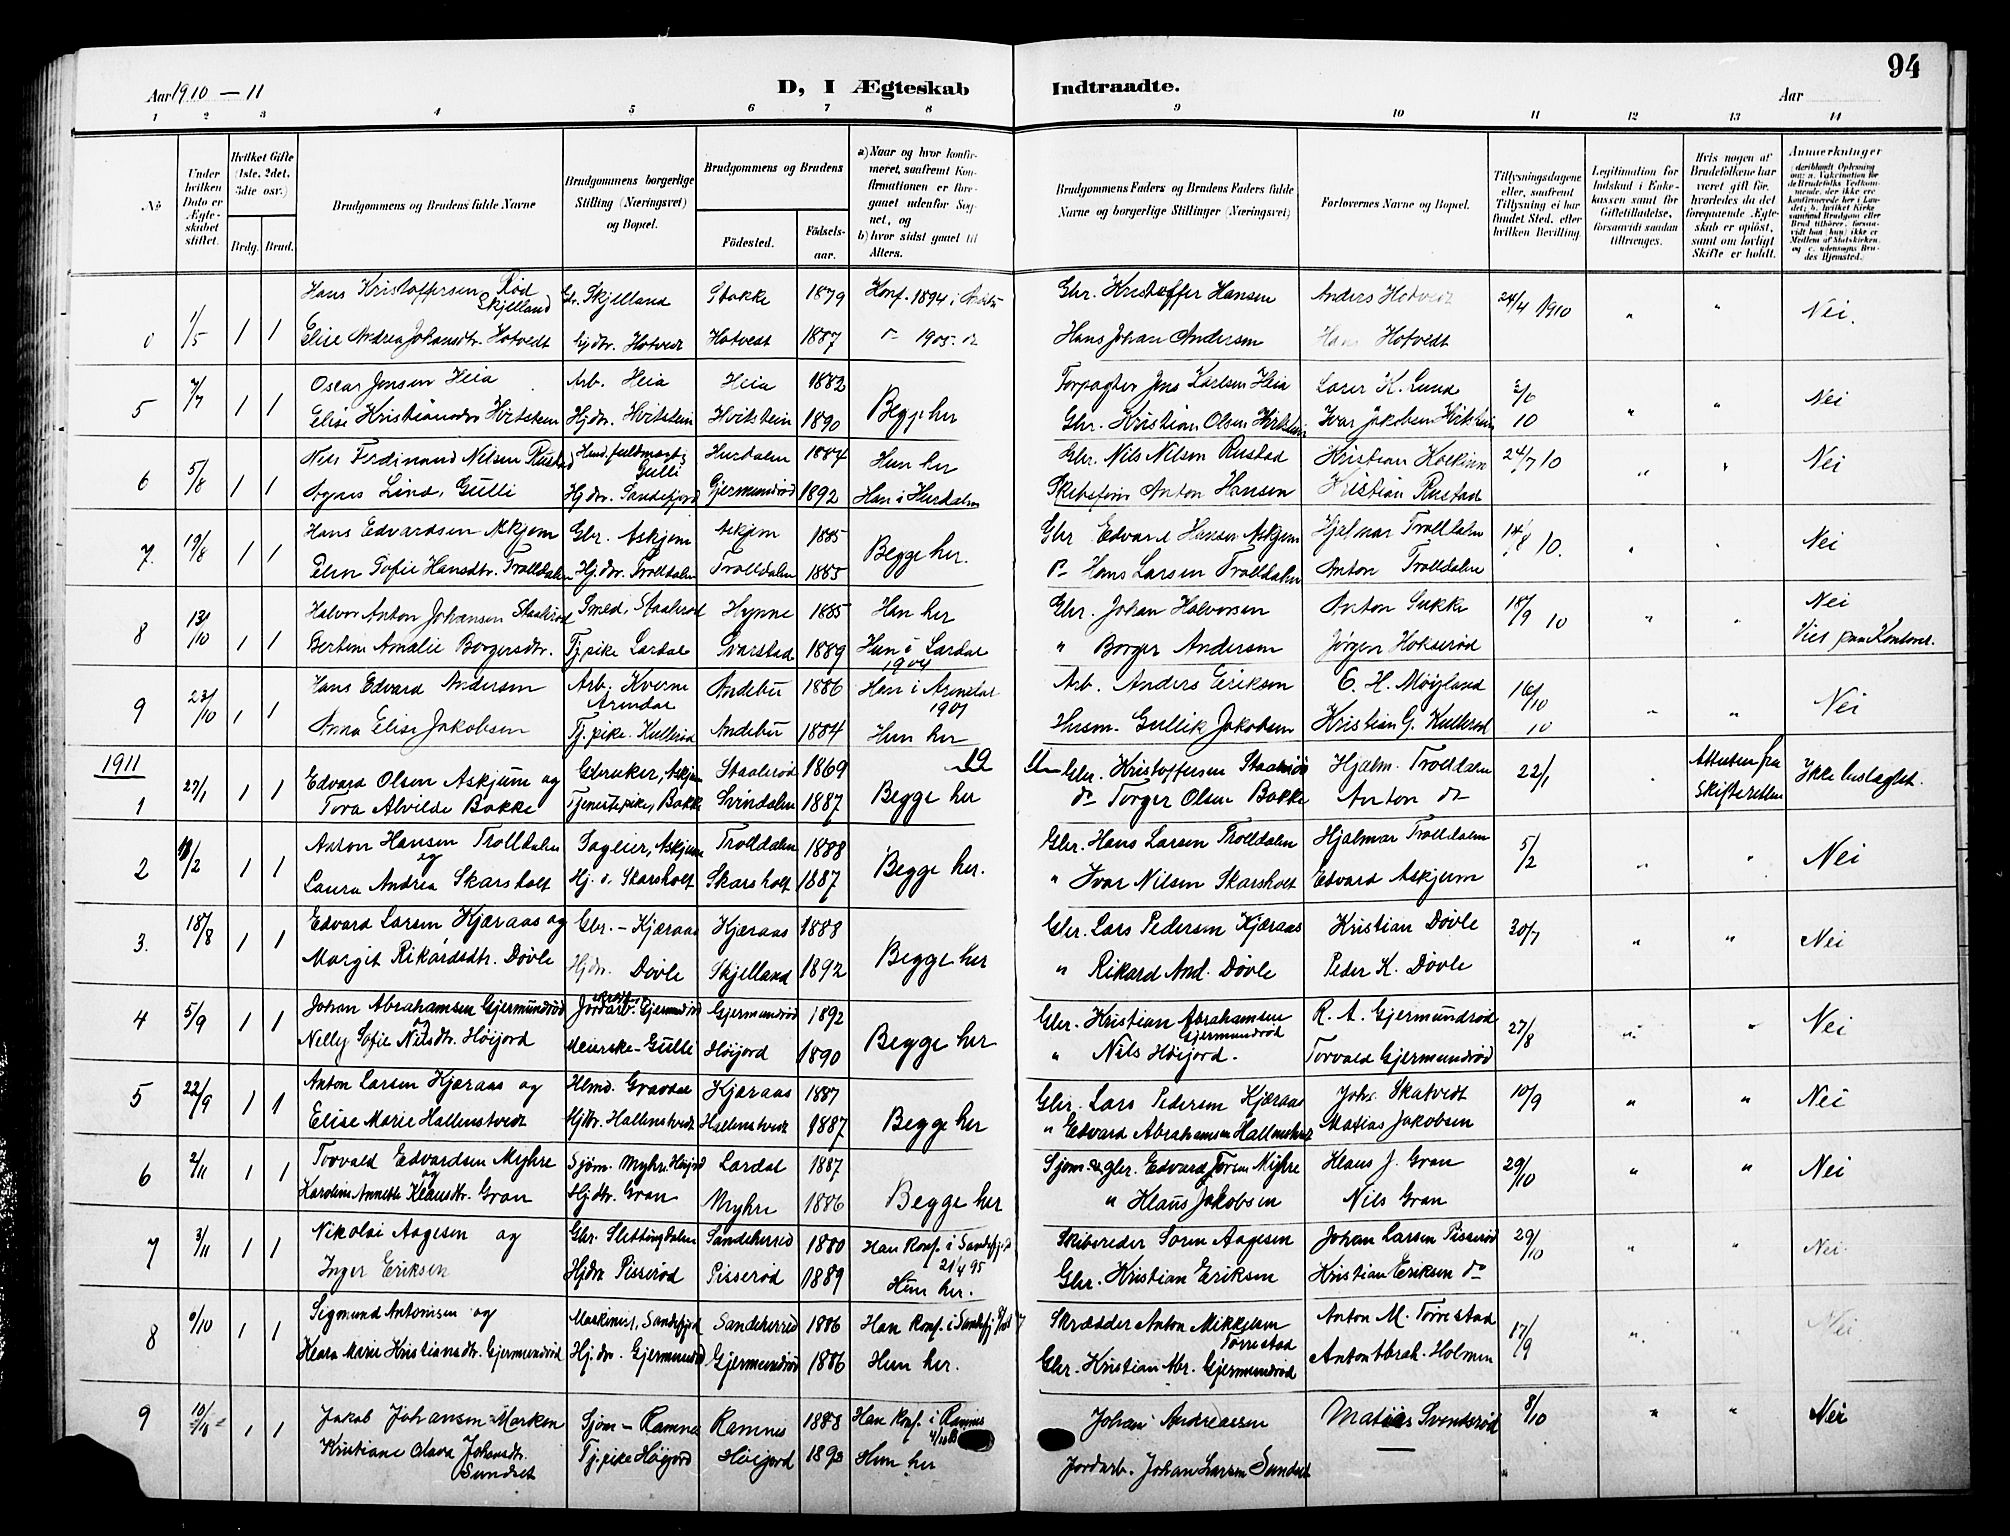 Aar 1910 – 11
D, I Ægteskab
Indtraadte.
Aar
94
1 2 3 4 5 6 7 8 9 10 11 12 13 14
No
Under hvilken Dato er Ægteskabet stiftet.
Hvilket Gifte (1ste, 2det, 3die osv.)
Brdg. Brud.
Brudgommens og Brudens fulde Navne
Brudgommens borgerlige Stilling (Næringsvei) og Bopæl.
Brudgommens og Brudens
Fødested.
Fødselsaar.
a) Naar og hvor konfirmeret, saafremt Konfirmationen er foregaaet udenfor Sognet, og
b) hvor sidst gaaet til Alters.
Brudgommens Faders og Brudens Faders fulde Navne og borgerlige Stillinger (Næringsvei)
Forlovernes Navne og Bopæl.
Tillysningsdagene eller, saafremt Tillysning ei har fundet Sted, efter hvilken Bevilling
Legitimation for Indskud i Enkekassen samt for Giftetilladelse, forsaavidt saadan tiltrænges.
Hvis nogen af Brudefolkene har været gift før, hvorledes da det foregaaende Ægteskab er opløst, samt om lovligt Skifte er holdt.
Anmerkninger
1/5 1 1 Hans Kristoffersen Rød Skjelland Gbr. Skjelland Stokke 1879 Konf. 1894 i Gbr. Kristoffer Hansen Anders Hotvedt 24/4 1910 " " Nei.
Elise Andrea Johansdtr. Hotvedt Gbdtr. Hotvedt Hotvedt 1887 1905 Hans Johan Andersen Hans Hotvedt
5 7/7 1 1 Oscar Jensen Heia Arb. Heia Heia 1882 Begge her Forpagter Jens Karlsen Heia K. Lund 3/6 10 " " Nei
Elise Kristiansdtr. Hvitstein Hjdtr. Hvitstein Hvitstein 1890 Gbr. Kristian Olsen Hvitstein Ivar Jakobsen Hvitstein
6 5/8 1 1 Nils Ferdinand Nilsen Rustad Gulli Hurdalen 1884 Hun her Gbr. Nils Nilsen Rustad Kristian 24/7 10 " " Nei
Agnes Lind, Gulli Hjdtr. Sandefjord Gjermundrød 1892 Han i Hurdalen Skibsfører Anton Hansen Kristian Rustad
7. 19/8 1 1 Hans Edvardsen Askjem Gbr. Askjem Askjem 1885 Begge her. Gbr Edvard Hansen Askjem Hjalmar Trolldalen 14/8 10. " " Nei
Elen Sofie Hansdtr. Trolldalen Hj.dtr. Trolldalen Trolldalen 1885 Hans Larsen Trolldalen Anton Trolldalen
8 13/10 1 1 Halvor Anton Johansen Staalerød Smed, Staalerød Hynne 1885 Han her Gbr. Johan Halvorsen Anton Sukke 18/9 10 " " Nei
Bertine Amalie Borgersdtr. Tj.pike Lardal Svarstad 1889 Hun i Lardal 1904 " Borger Andersen Jørgen Hokserød Viet paa Kontoret.
9 23/10 1 1 Hans Edvard Andersen Arb. Kverne Arendal Andebu 1886 Han i Arendal 1901 Arb. Anders Eriksen O. H. Moyland 16/10 10 " " Nei
Anna Elise Jakobsen Tj.pike. Kullerød Andebu 1884 Hun her Husm. Gullik Jakobsen Kristian G. Kullerød
1911
1 27/1 1 1 Edvard Olsen Askjum og Gbruker, Askjem Staalerød 1869 Begge her Gbr. Kristoffersen Staalerød Hjalm. Trolldalen 22/1 Attesten fra Skifteretten Ikke luslagtet.
Tora Alvilde Bakke Tjenestepike, Bakke Svindalen 1887 do Torger Olsen Bakke Anton do
2 /2 1 1 Anton Hansen Trolldalen og Sageier, Askjem Trolldalen 1888 Begge her. Gbr. Hans Larsen Trolldalen Hjalmar Trolldalen 5/2 " " Nei
Laura Andrea Skarsholt Hj. d. Skarsholt Skarsholt 1887 " Ivar Nilsen Skarsholt Edvard Askjem
3. 18/8 1 1 Edvard Larsen Kjæraas og Gbr. – Kjæraas Kjæraas 1888 Begge her Gbr. Lars Pedersen Kjæraas Kristian Døvle 30/7 " " Nei
Margit Rikardsdtr. Døvle Hjdtr. Døvle Skjelland 1892 " Rikard And. Døvle Peder K. Døvle
4 5/9 1 1 Johan Abrahamsen Gjermundrød og Jordarb. Gjermundrød Gjermundrød 1892 Begge her Gbr. Kristian Abrahamsen Gjermundrød R. A. Gjermundrød 27/8 " " Nei
Nelly Sofie Nilsdtr. Høijord Meierske – Gulli Høijord 1890 " Nils Høijord. Torvald Gjermundrød
5 22/9 1 1 Anton Larsen Kjæraas og Hlmd. Gravdal Kjæraas 1887 Begge her Gbr. Lars Pedersen Kjæraas Joh. Skatvedt 10/9 " " Nei
Elise Marie Hallenstvedt Hjdtr. Hallenstvedt Hallenstvedt 1887 " Edvard Abrahamsen Hallenstvedt Matias Jakobsen
6 2/11 1 1 Torvald Edvardsen Myhre og Sjøm. Myhre, Høijord Lardal 1887 Begge her Sjøm. & gbr. Edvard Toresen Myhre Klaus J. Gran 29/10 " " Nei
Karoline Annette Klausdtr. Gran Hjdtr. Gran Myhre 1886 " Klaus Jakobsen Nils Gran
7 3/11 1 1 Nikolai Aagesen og Gbr. Slettingdalen Sandeherred 1880 Han Konf. i Sandefjord 21/4 95 Skibsreder Søren Aagesen Johan Larsen Pisserød 29/10 " " Nei.
Inger Eriksen Hjdtr Pisserød Pisserød 1889 Hun her. Gbr. Kristian Eriksen Kristian Eriksen do
8 /10 1 1 Sigmund Antonsen og Maskinist, Sandefjord Sandeherred 1886 Han Konf. i Sandefj. Skrædder Anton Mikkelsen Torrestad Anton M. Torrestad 17/9 " " Nei
Klara Marie Kristiansdtr. Gjermundrød Hj.dtr. Gjermundrød Gjermundrød 1886 Hun her. Gbr. Kristian Abr. Gjermundrød Anton Abrah. Holmen
9 10/ 1 1 Jakob Johansen Marken Sjøm – Ramnes Ramnes 1888 Han Konf. i Ramnes Johan Andreassen Matias Svendsrød 8/10 " " Nei
Kristiane Olava Johansdtr. Sundset Tj.pike Høijord Høijord 1893 Hun her Jordarb. Johan Larsen Sundset